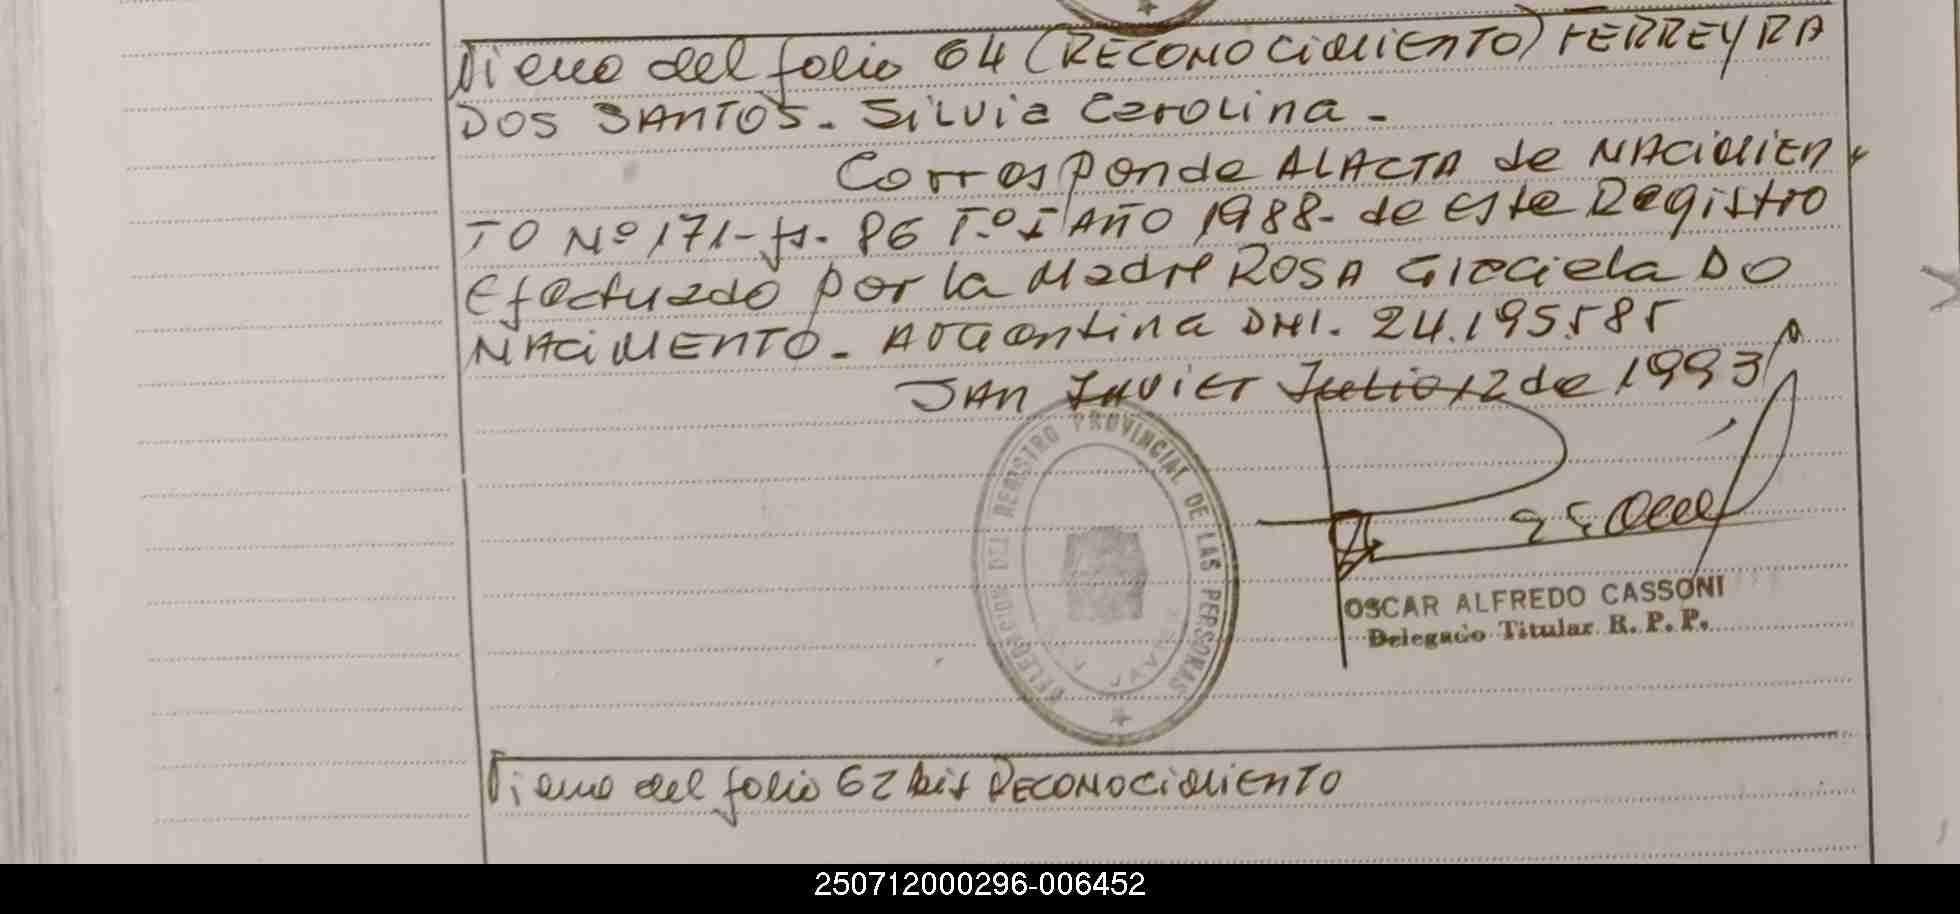 Viene del folio 64 (RECONOCIMIENTO) FERREYRA
DOS SANTOS. Silvia Carolina.-
Corresponde AL ACTA de NACIMIEN
TO Nº 171-fs. 86 T.º I AÑO 1988- de este Registro
Efectuado por la Madre ROSA Graciela DO
NACIMENTO. Argentina DNI. 24.195.585
SAN JAVIER Julio 12 de 1993
DELEGACION DEL REGISTRO PROVINCIAL DE LAS PERSONAS
JAVIER
OSCAR ALFREDO CASSONI
Delegado Titular R. P. P.
Viene del folio 62 bis RECONOCIMIENTO
250712000296-006452